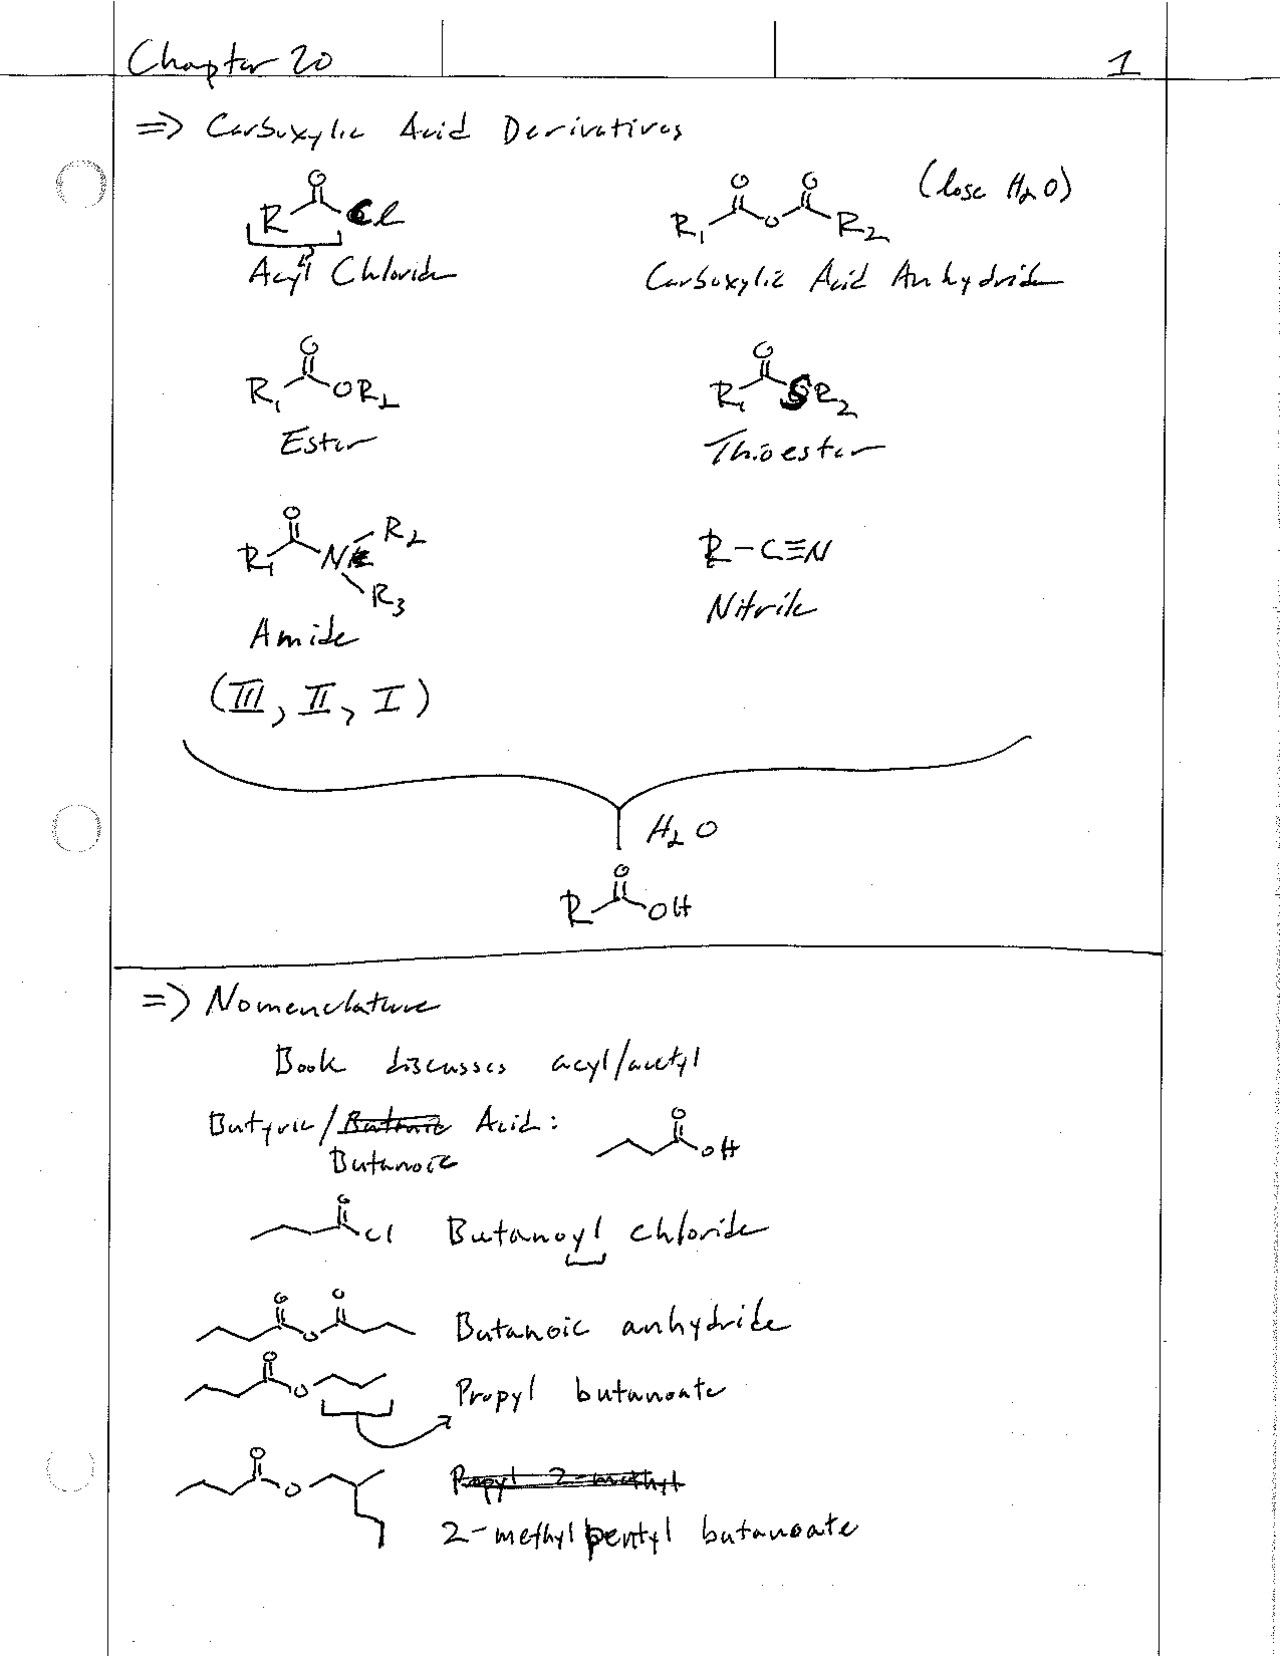 Chapter 20 1
=> Carboxylic Acid Derivatives
(lose H₂O)
O
R Cl
Acyl Chloride
O O
R₁ O R₂
Carboxylic Acid Anhydride
O
R₁ OR₂
Ester
O
R₁ SR₂
Thioester
O
R₁ N R₂
R₃
Amide
R-C≡N
Nitrile
(III, II, I)
H₂O
O
R OH
=> Nomenclature
Book discusses acyl/acetyl
Butyric/Butanic Acid:
Butanoic
O
OH
O
Cl Butanoyl chloride
O O
O Butanoic anhydride
O
O Propyl butanoate
O
O Propyl 2-methyl
2-methylpentyl butanoate